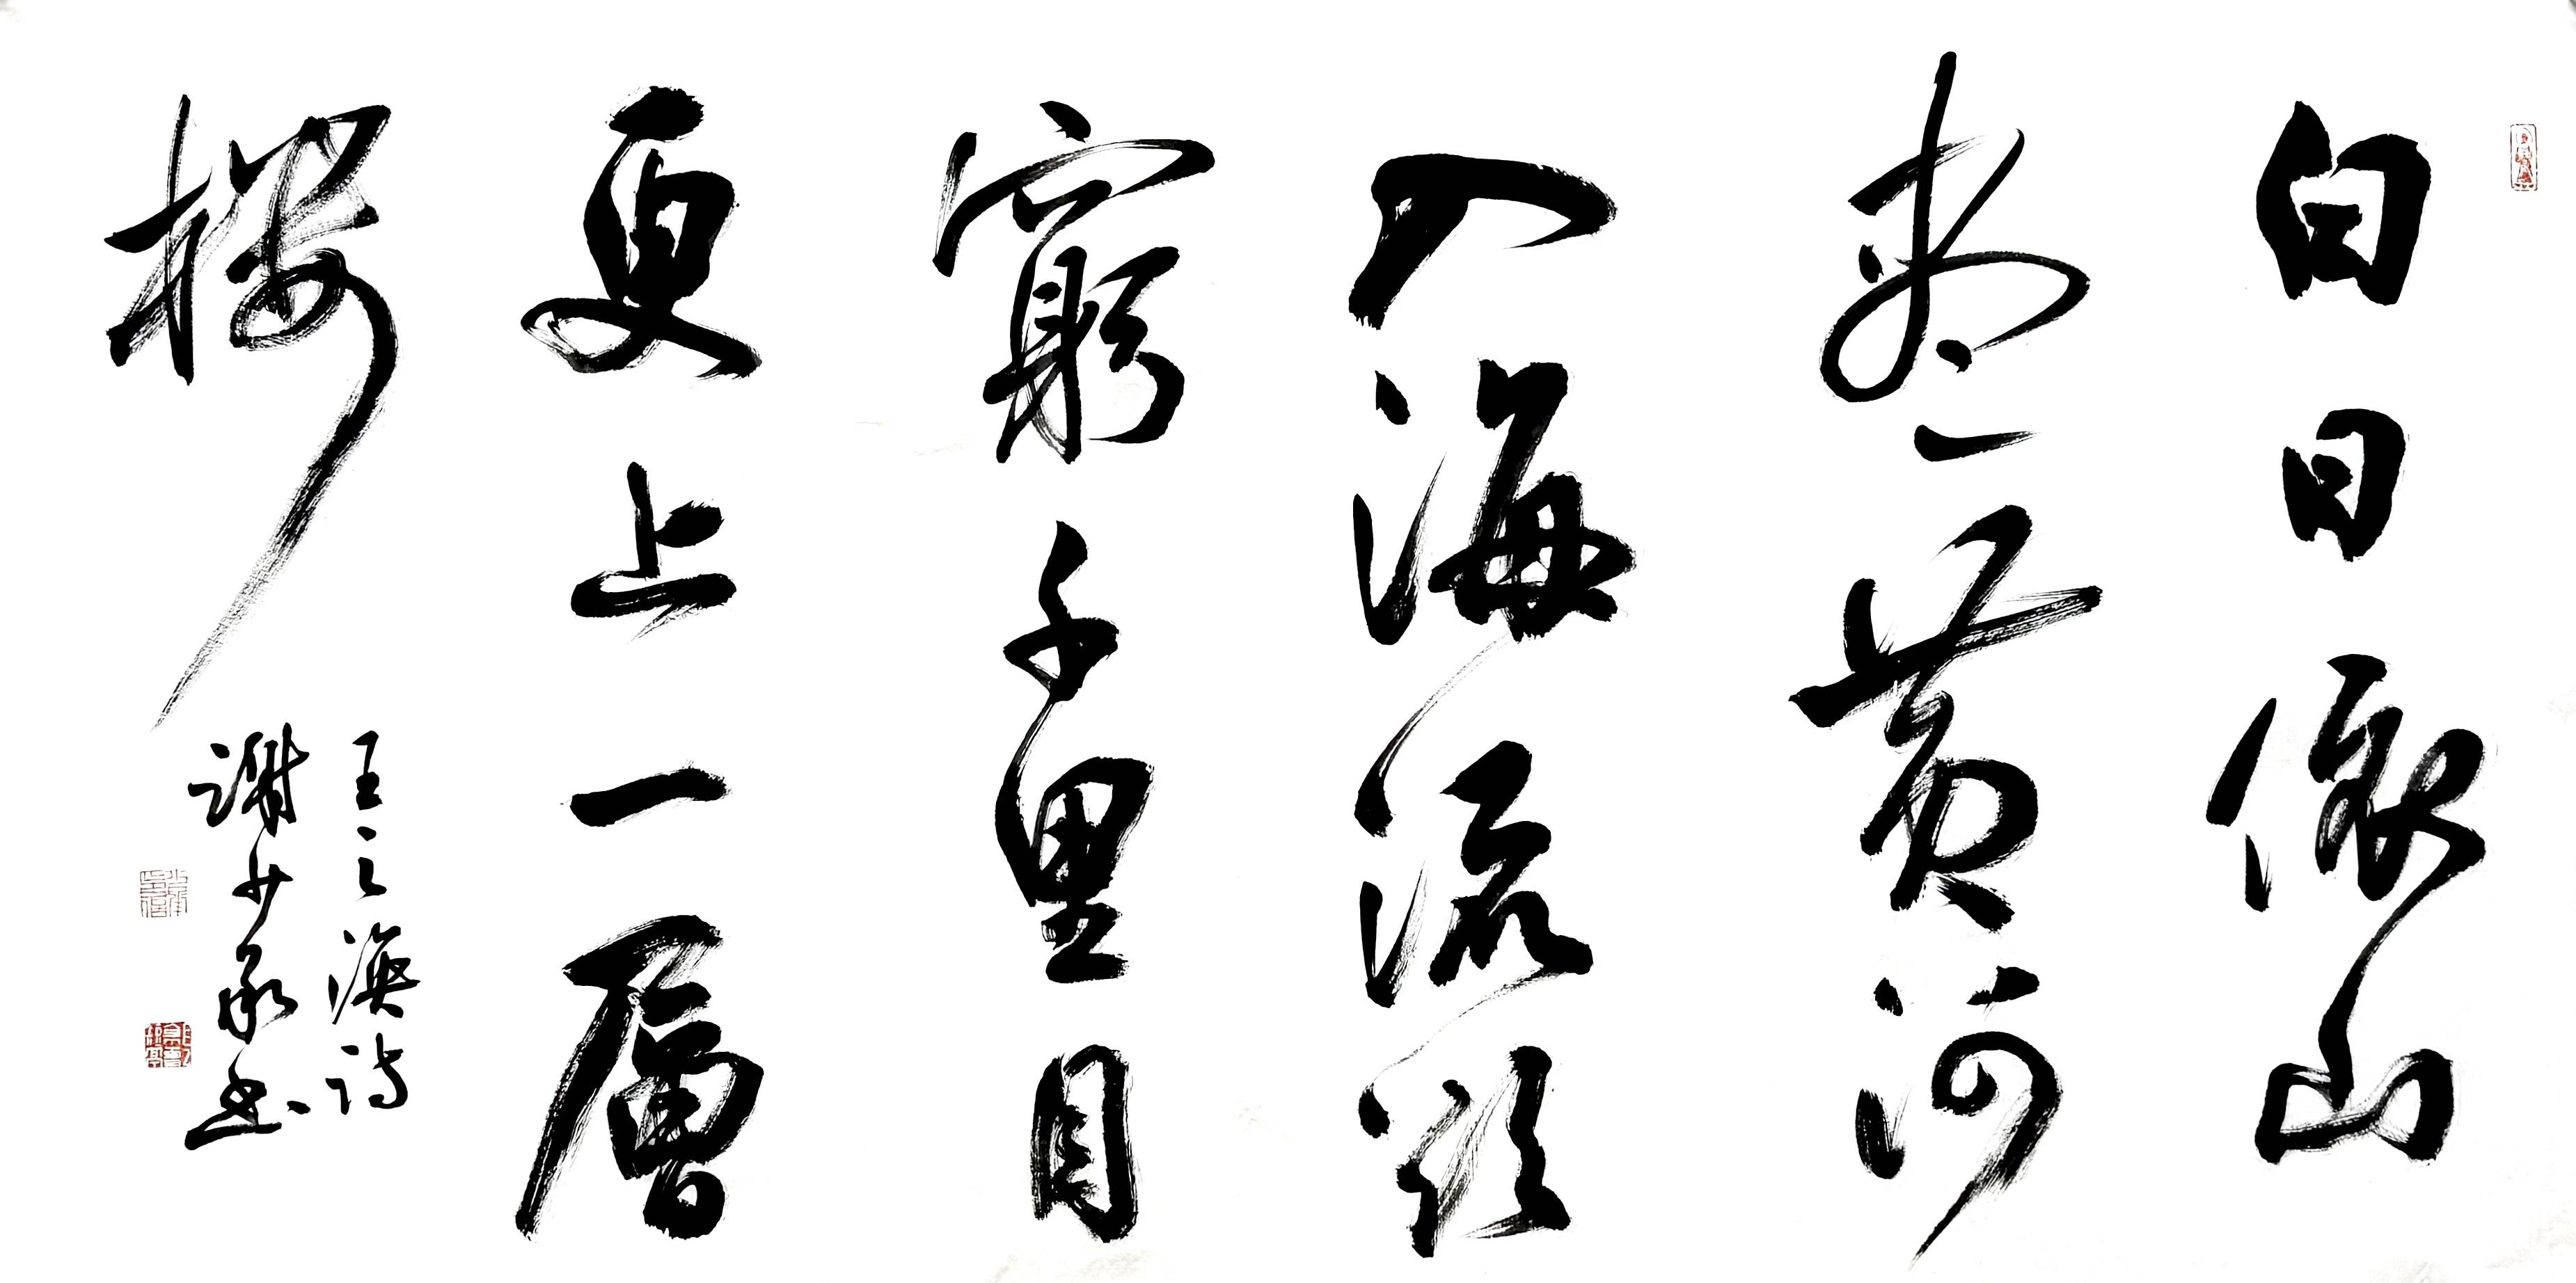 白日依山
盡黃河
入海流欲
窮千里目
更上一層
樓
王之渙詩
謝少承書